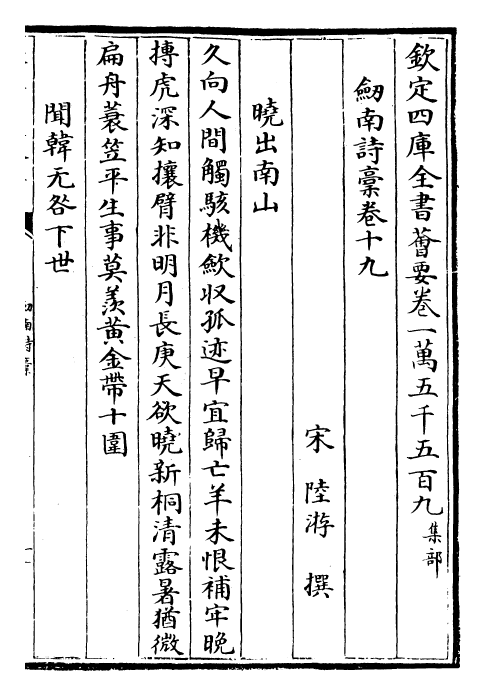 欽定四庫全書薈要卷一萬五千五百九集部
劒南詩藳卷十九
宋陸游撰
曉出南山
久向人間觸駭機歛収孤迹早宜歸亡羊未恨補牢晚
摶虎深知攘臂非明月長庚天欲曉新桐清露暑猶微
扁舟蓑笠平生事莫羨黃金帶十圍
聞韓无咎下世